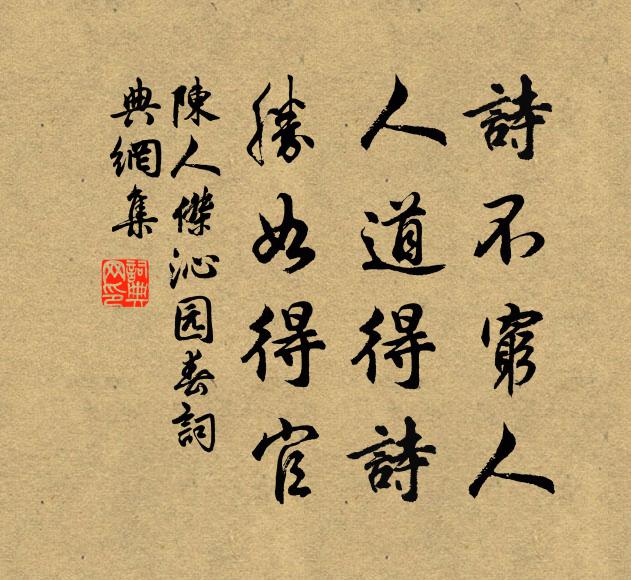 詩不窮人
人道得詩
勝如得官
陳人傑沁园春詞
典網集
詞典
网印